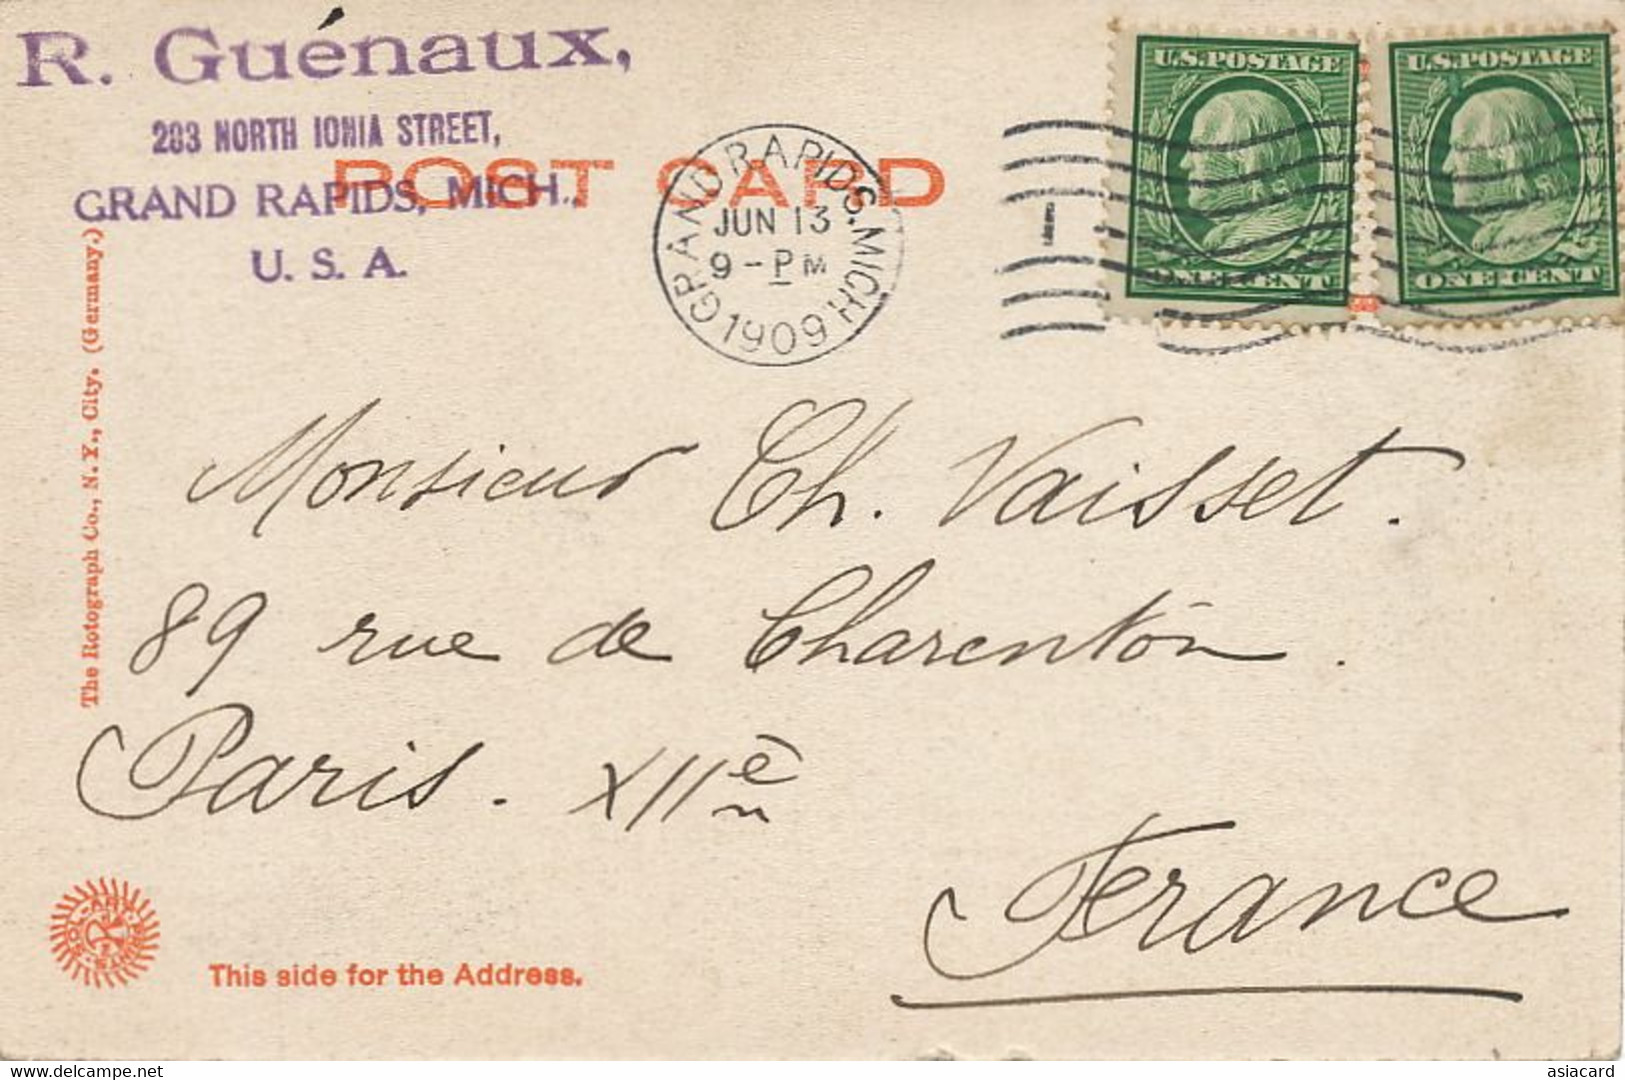 R. Guénaux,
203 NORTH IONIA STREET,
GRAND RAPIDS, MICH.,
U. S. A.
POST CARD
GRAND RAPIDS, MICH.
JUN 13
9-PM
1909
U.S. POSTAGE
ONE CENT
U.S. POSTAGE
ONE CENT
The Rotograph Co., N. Y., City. (Germany.)
Monsieur Ch. Vaisset.
89 rue de Charenton.
Paris. XIIè
France
This side for the Address.
delcampe.net
asiacard